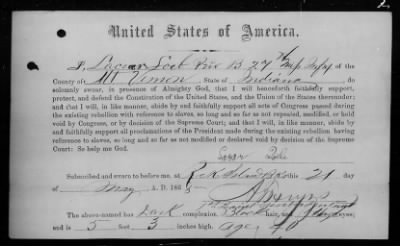 United States of America.
I, Pri B 27 of the
County of Mt Vernon, State of Indiana, do
solemnly swear, in presence of Almighty God, that I will henceforth faithfully support,
protect, and defend the Constitution of the United States, and the Union of the States thereunder;
and that I will, in like manner, abide by and faithfully support all acts of Congress passed during
the existing rebellion with reference to slaves, so long and so far as not repealed, modified, or held
void by Congress, or by decision of the Supreme Court; and that I will, in like manner, abide by
and faithfully support all proclamations of the President made during the existing rebellion having
reference to slaves, so long and so far as not modified or declared void by decision of the Supreme
Court: So help me God.
Subscribed and sworn to before me, at this 21 day
of May A. D. 186
The above-named has dark complexion, Black hair, and eyes;
and is 5 feet 3 inches high. age, 40